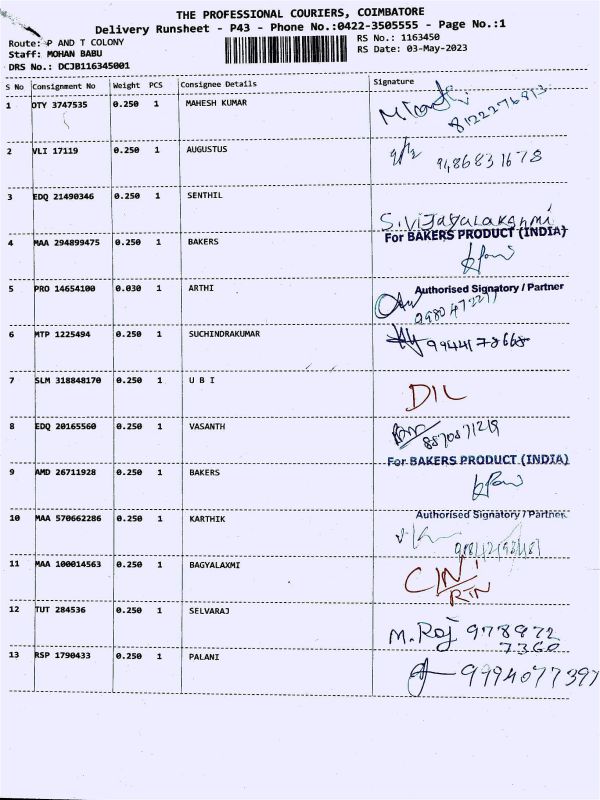 THE PROFESSIONAL COURIERS, COIMBATORE
Delivery Runsheet - P43 - Phone No.:0422-3505555 - Page No.:1
Route: P AND T COLONY
RS No.: 1163450
Staff: MOHAN BABU
RS Date: 03-May-2023
DRS No.: DCJB116345001
S No Consignment No Weight PCS Consignee Details Signature
1 OTY 3747535 0.250 1 MAHESH KUMAR
8122276813
2 VLI 17119 0.250 1 AUGUSTUS 9486831678
3 EDQ 21490346 0.250 1 SENTHIL
S. Vijayalakshmi
For BAKERS PRODUCT (INDIA)
4 MAA 294899475 0.250 1 BAKERS
Authorised Signatory / Partner
5 PRO 14654100 0.030 1 ARTHI
6 MTP 1225494 0.250 1 SUCHINDRAKUMAR 9944178668
7 SLM 318848170 0.250 1 U B I
DIL
8 EDQ 20165560 0.250 1 VASANTH 8870871219
For BAKERS PRODUCT (INDIA)
9 AMD 26711928 0.250 1 BAKERS
Authorised Signatory / Partner
10 MAA 570662286 0.250 1 KARTHIK
11 MAA 100014563 0.250 1 BAGYALAXMI
RTN
12 TUT 284536 0.250 1 SELVARAJ
M. Raj 978972
7360
13 RSP 1790433 0.250 1 PALANI
9994077397